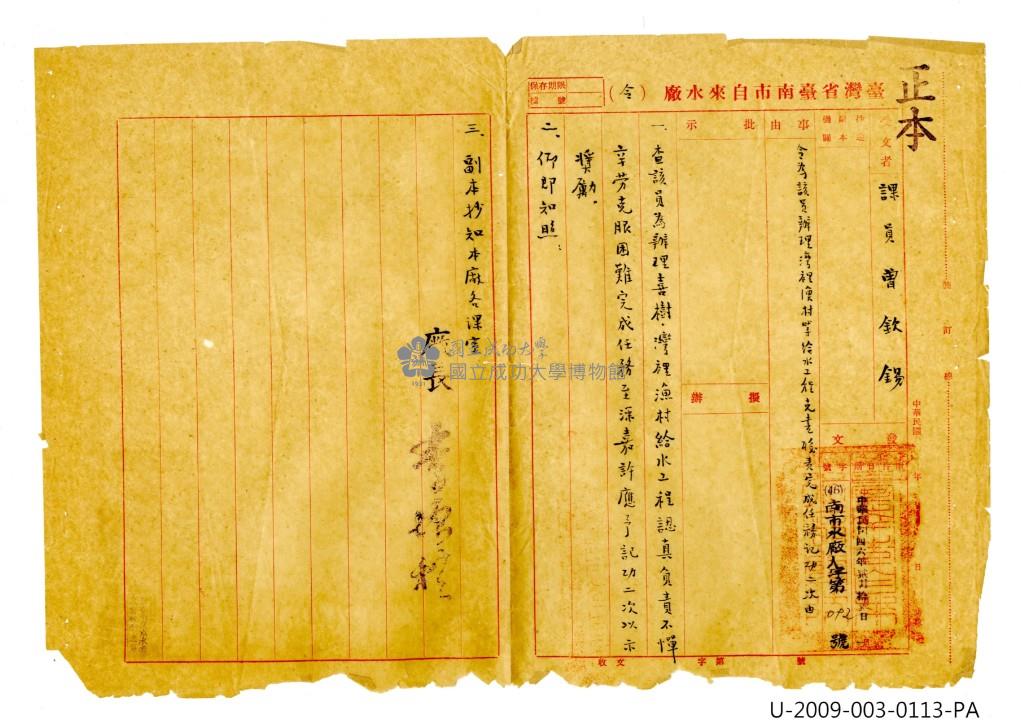 正本
臺灣省臺南市自來水廠（令）
保存期限
檔號
受文者
課員曾欽錫
抄送
副本
機關
事由
批示
擬辦
令為該員辦理灣裡漁村等給水工程克盡職責完成任務記功二次由
中華民國
年
日
發
文
字號
中華民國四六年貳月拾
日
(46)南市水廠人字第
092
號
一、查該員為辦理喜樹、灣裡漁村給水工程認真負責不憚
辛勞克服困難完成任務至深嘉許應予記功二次以示
獎勵。
二、仰即知照：
三、副本抄知本廠各課室
廠長
收文
字第
號
訂
線
國立成功大學
國立成功大學博物館
1931
U-2009-003-0113-PA